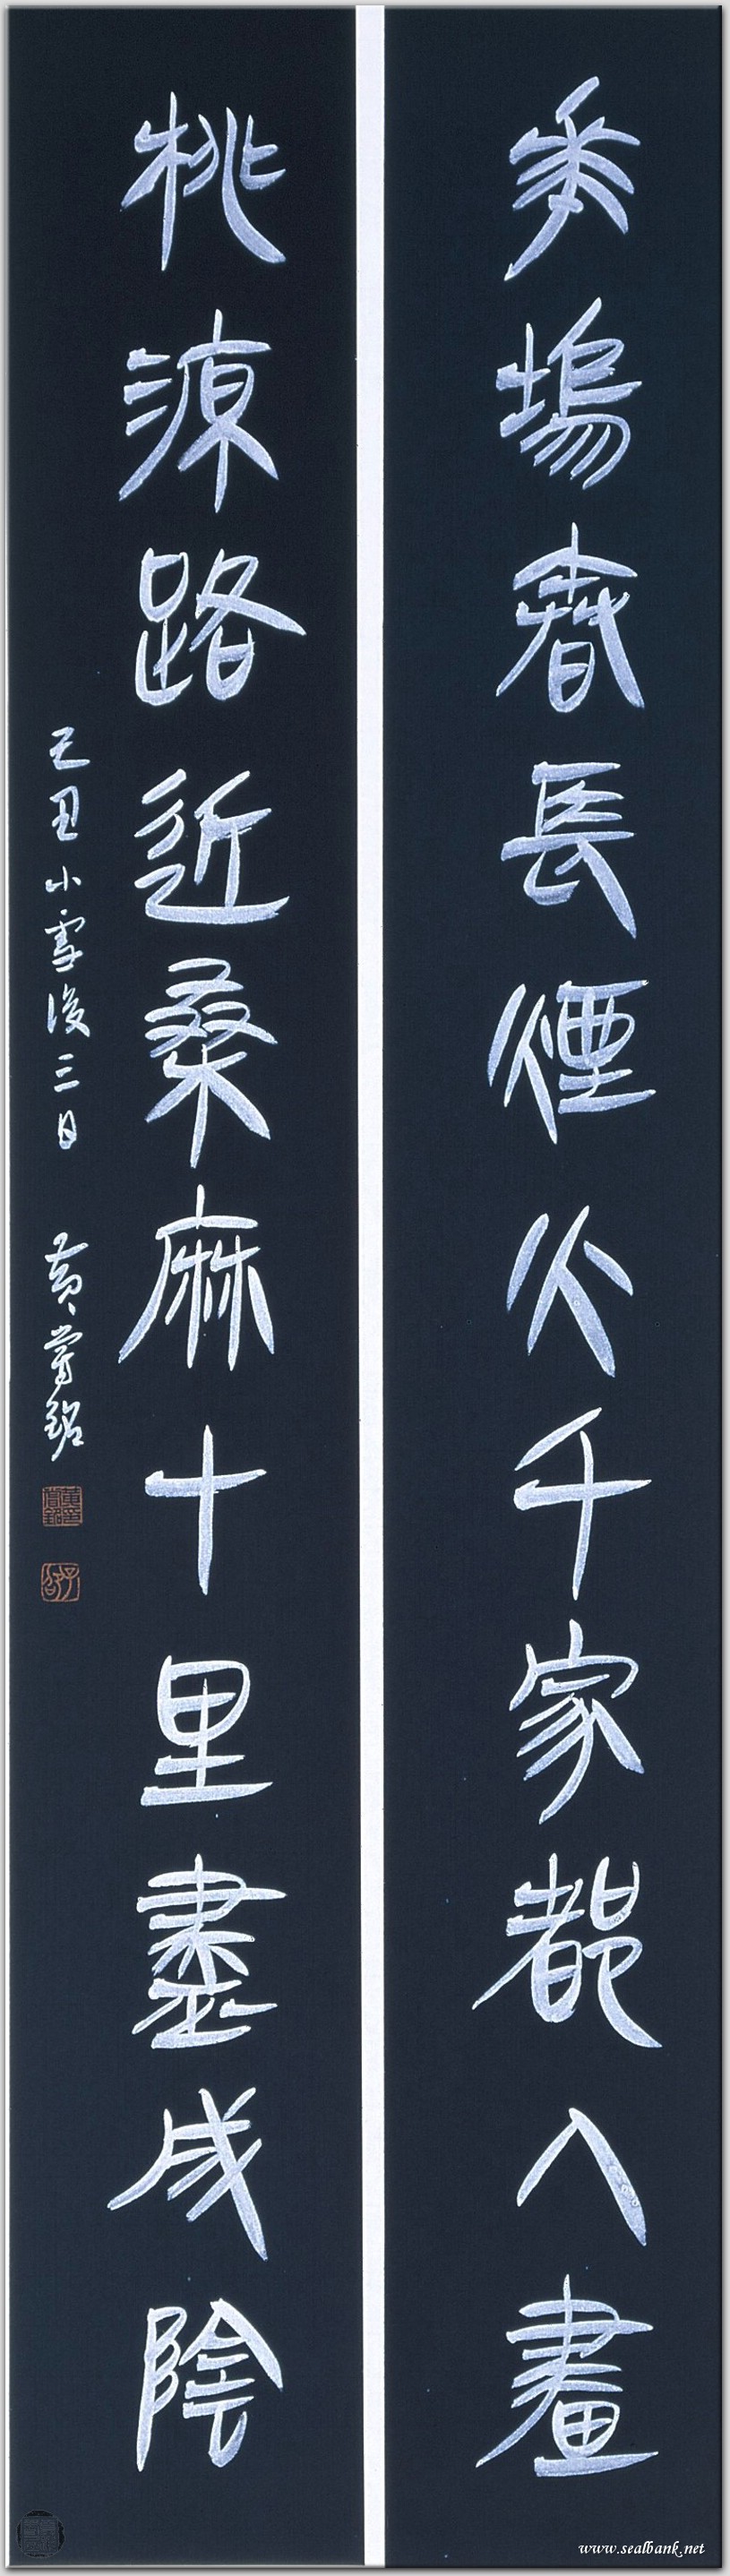 華塢春長煙火千家都入畫
桃源路近桑麻十里盡成陰
己丑小雪後三日 黃嘗銘
www.sealbank.net